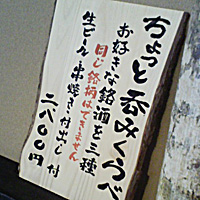 ちょっと呑みくらべ
お好きな銘酒を三種
同じ銘柄はできません
生ビール 串焼き 付出し 付
二八〇〇円